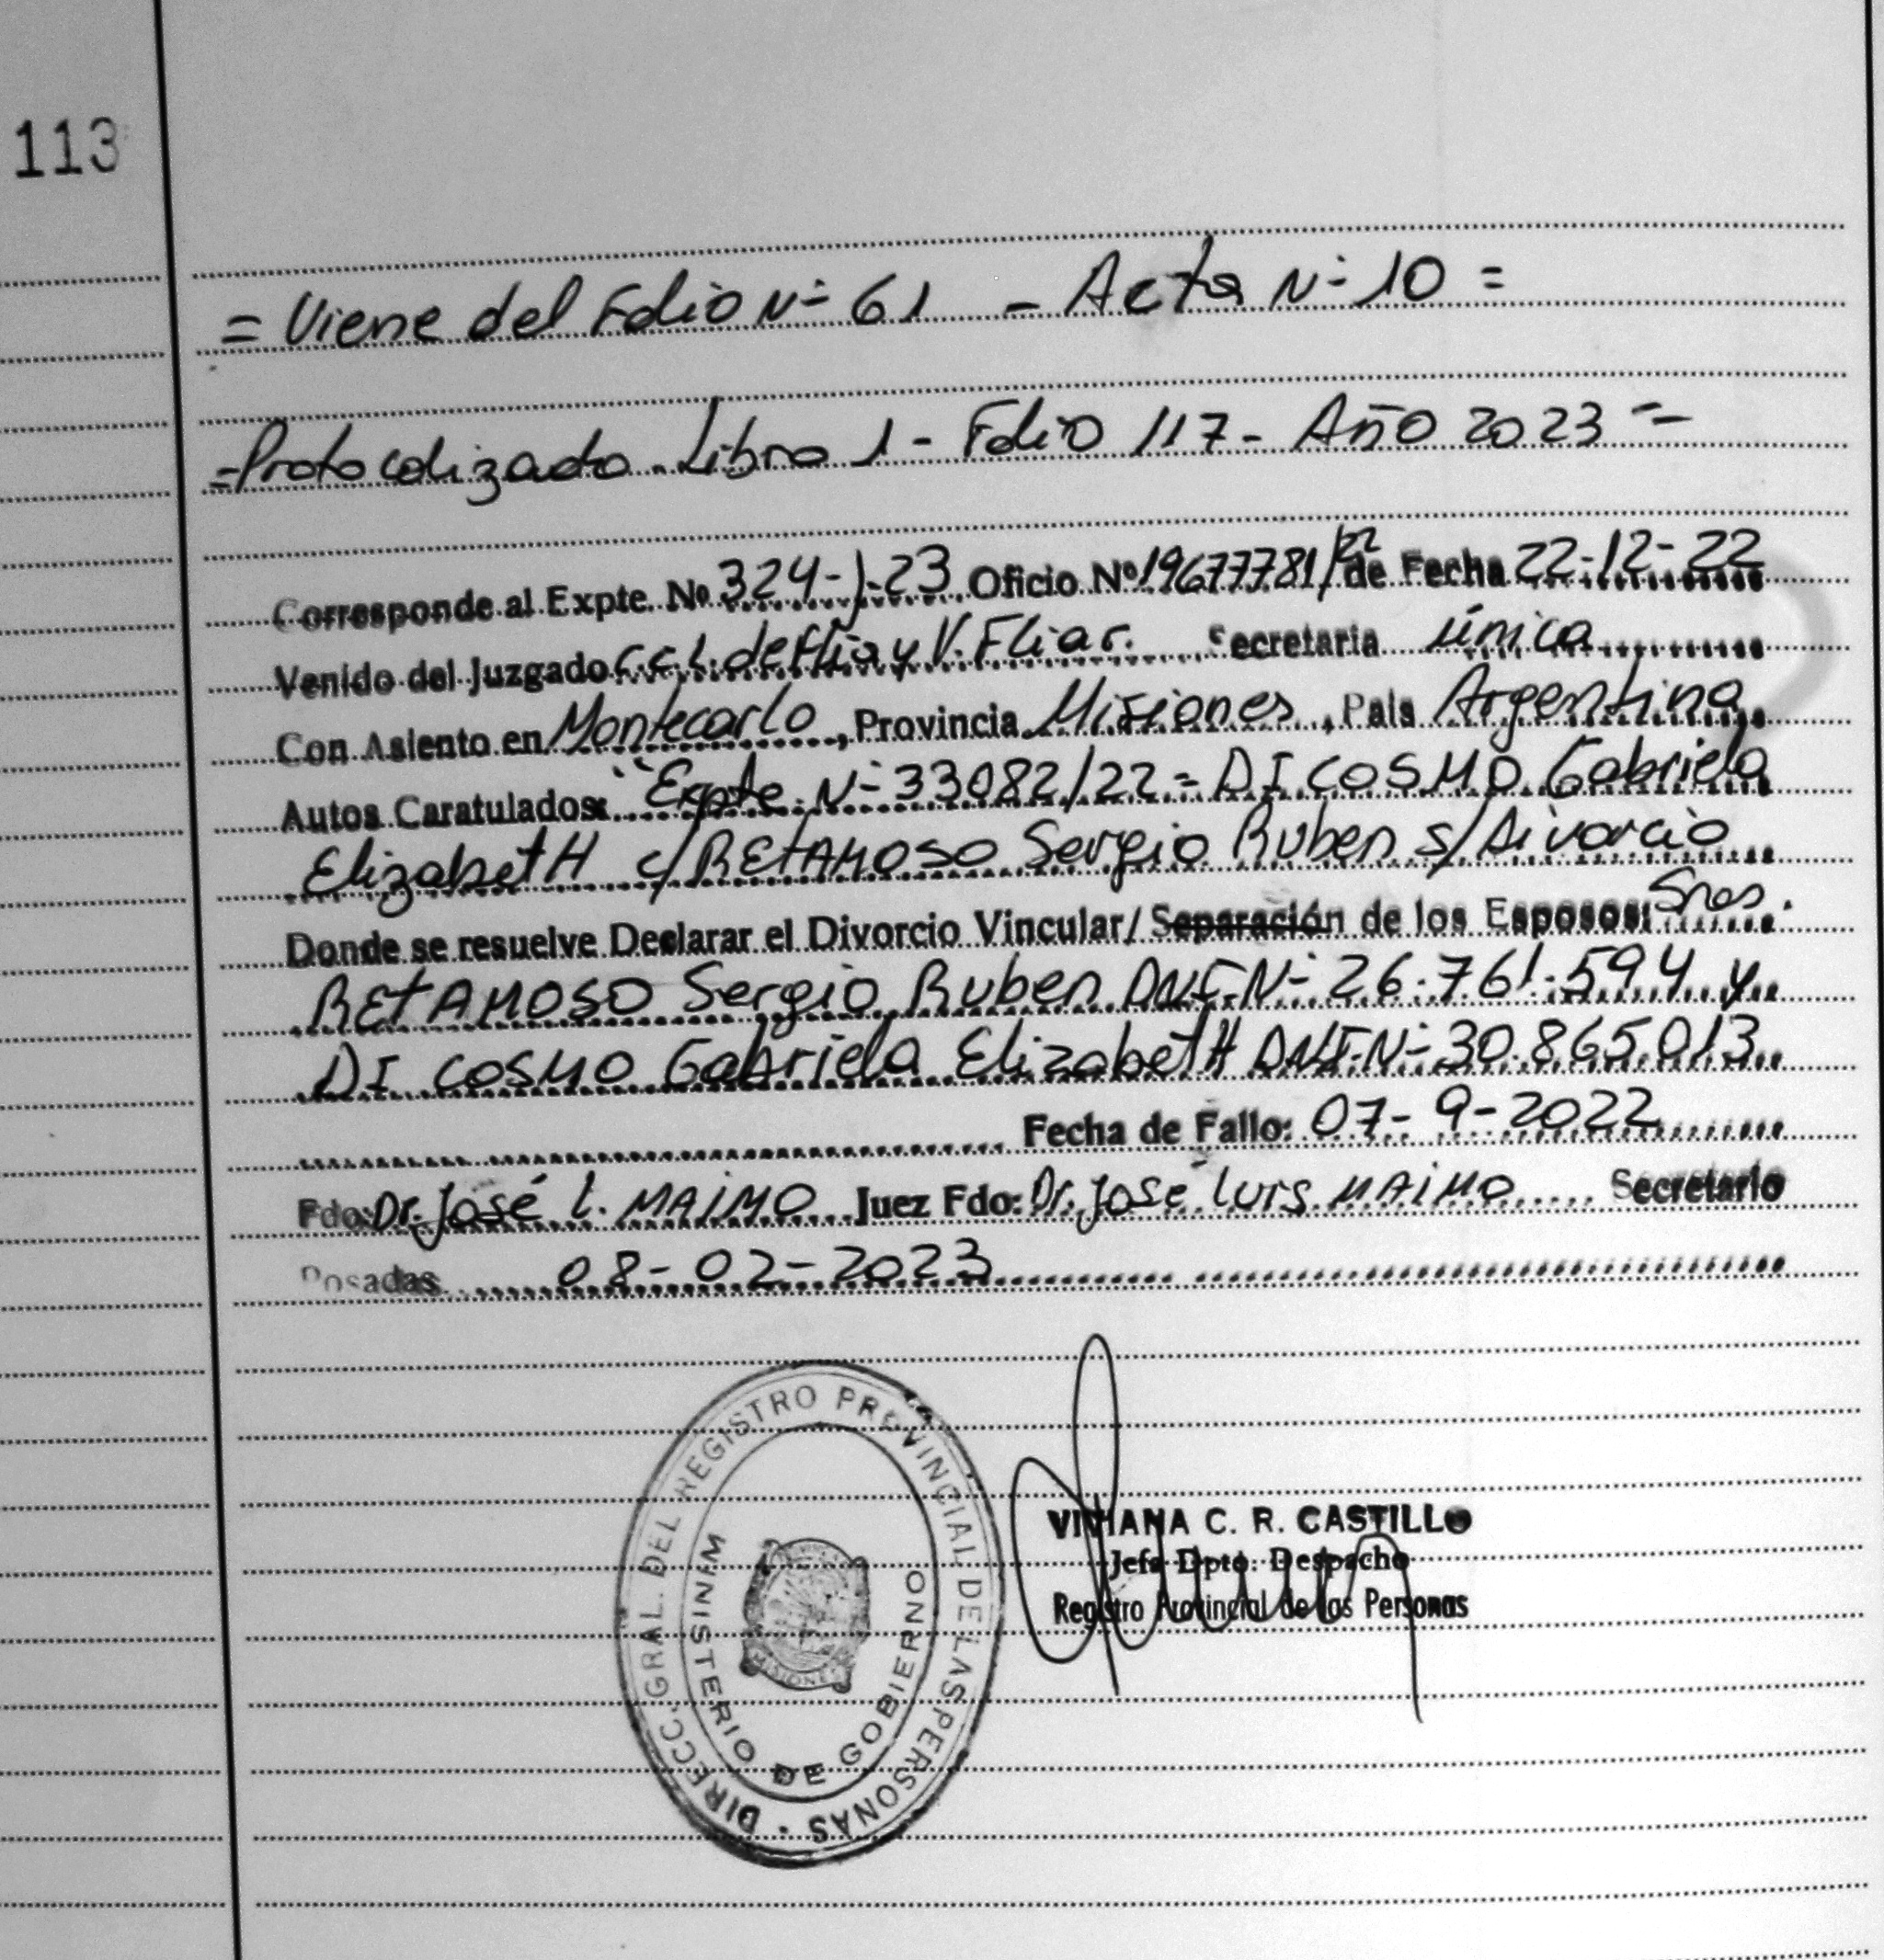 113
= Viene del Folio Nº 61 - Acta Nº 10 =
= Protocolizado. Libro 1 - Folio 117 - Año 2023 =
Corresponde al Expte. Nº 324-J-23. Oficio Nº 19677781/22 de Fecha 22-12-22
Venido del Juzgado C.C.L. de Flia y V. Fliar. Secretaria única
Con Asiento en Montecarlo, Provincia Misiones, País Argentina
Autos Caratulados: "Expte. Nº 33082/22 = DI COSMO Gabriela
Elizabeth c/ RETAMOSO Sergio Ruben s/ Divorcio
Donde se resuelve Declarar el Divorcio Vincular/ Separación de los Esposos: Sres.
RETAMOSO Sergio Ruben DNI Nº 26.761.594 y
DI COSMO Gabriela Elizabeth DNI Nº 30.865.013
Fecha de Fallo: 07-9-2022
Fdo: Dr. José L. MAIMO Juez Fdo: Dr. José Luis MAIMO Secretario
Posadas 08-02-2023
DIRECC. GRAL. DEL REGISTRO PROVINCIAL DE LAS PERSONAS
MINISTERIO DE GOBIERNO
MISIONES
VIVIANA C. R. CASTILLO
Jefa Dpto. Despacho
Registro Provincial de las Personas